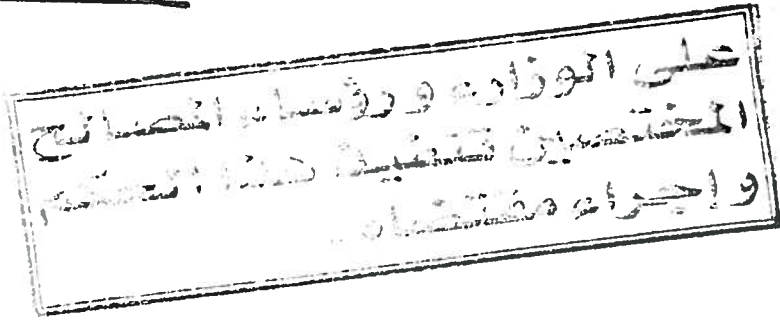 على الوزارة ورؤساء المصالح
المختصين تنفيذ هذا الحكم
واجراء مقتضاه